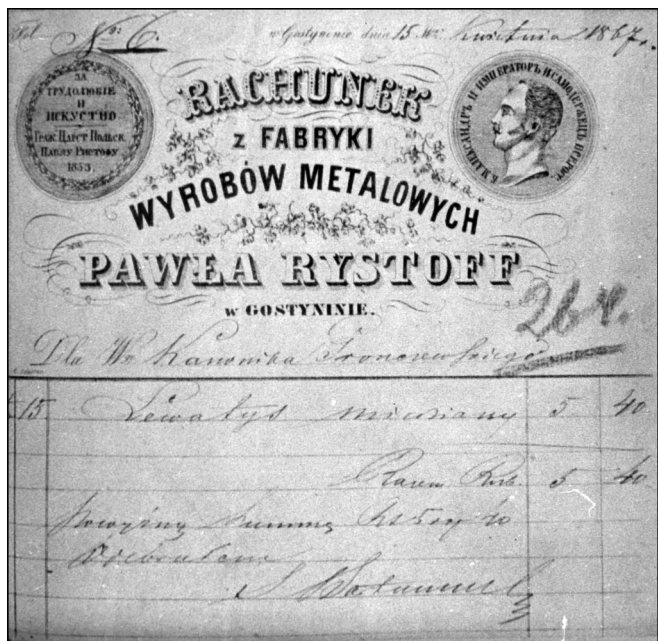 Fol. No: 6. w Gostyninie dnia 15 Mca Kwietnia 1867 r.
ЗА
ТРУДОЛЮБІЕ
И
ИСКУСТВО
ГРАЖ. ЦАРСТ. ПОЛЬСК.
ПАВЛУ РИСТОФУ
1853.
Б. М. АЛЕКСАНДРЪ II ИМПЕРАТОРЪ И САМОДЕРЖЕЦЪ ВСЕРОС.
RACHUNEK
z FABRYKI
WYROBÓW METALOWYCH
PAWŁA RYSTOFF
w GOSTYNINIE.
26 r.
Dla Wo Kanonika
15 Lewatys 5 40
Razem Rub. 5 40
Powyższą Summę Rs 5 40
odebrałem